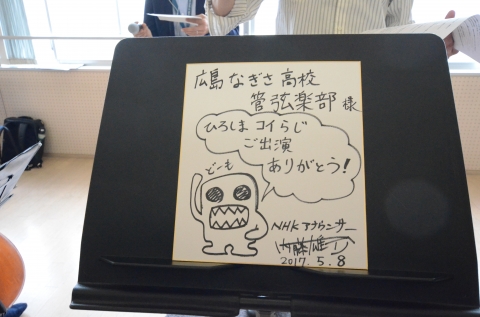 広島なぎさ高校
管弦楽部 様
ひろしまコイらじ
ご出演
ありがとう！
どーも
NHKアナウンサー
2017.5.8